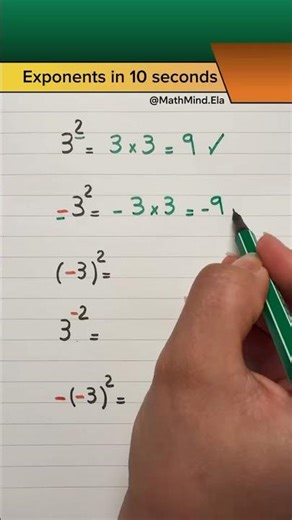 Exponents in 10 seconds
@MathMind.Ela
3² = 3 × 3 = 9 ✓
-3² = -3 × 3 = -9
(-3)² =
3⁻² =
-(-3)² =